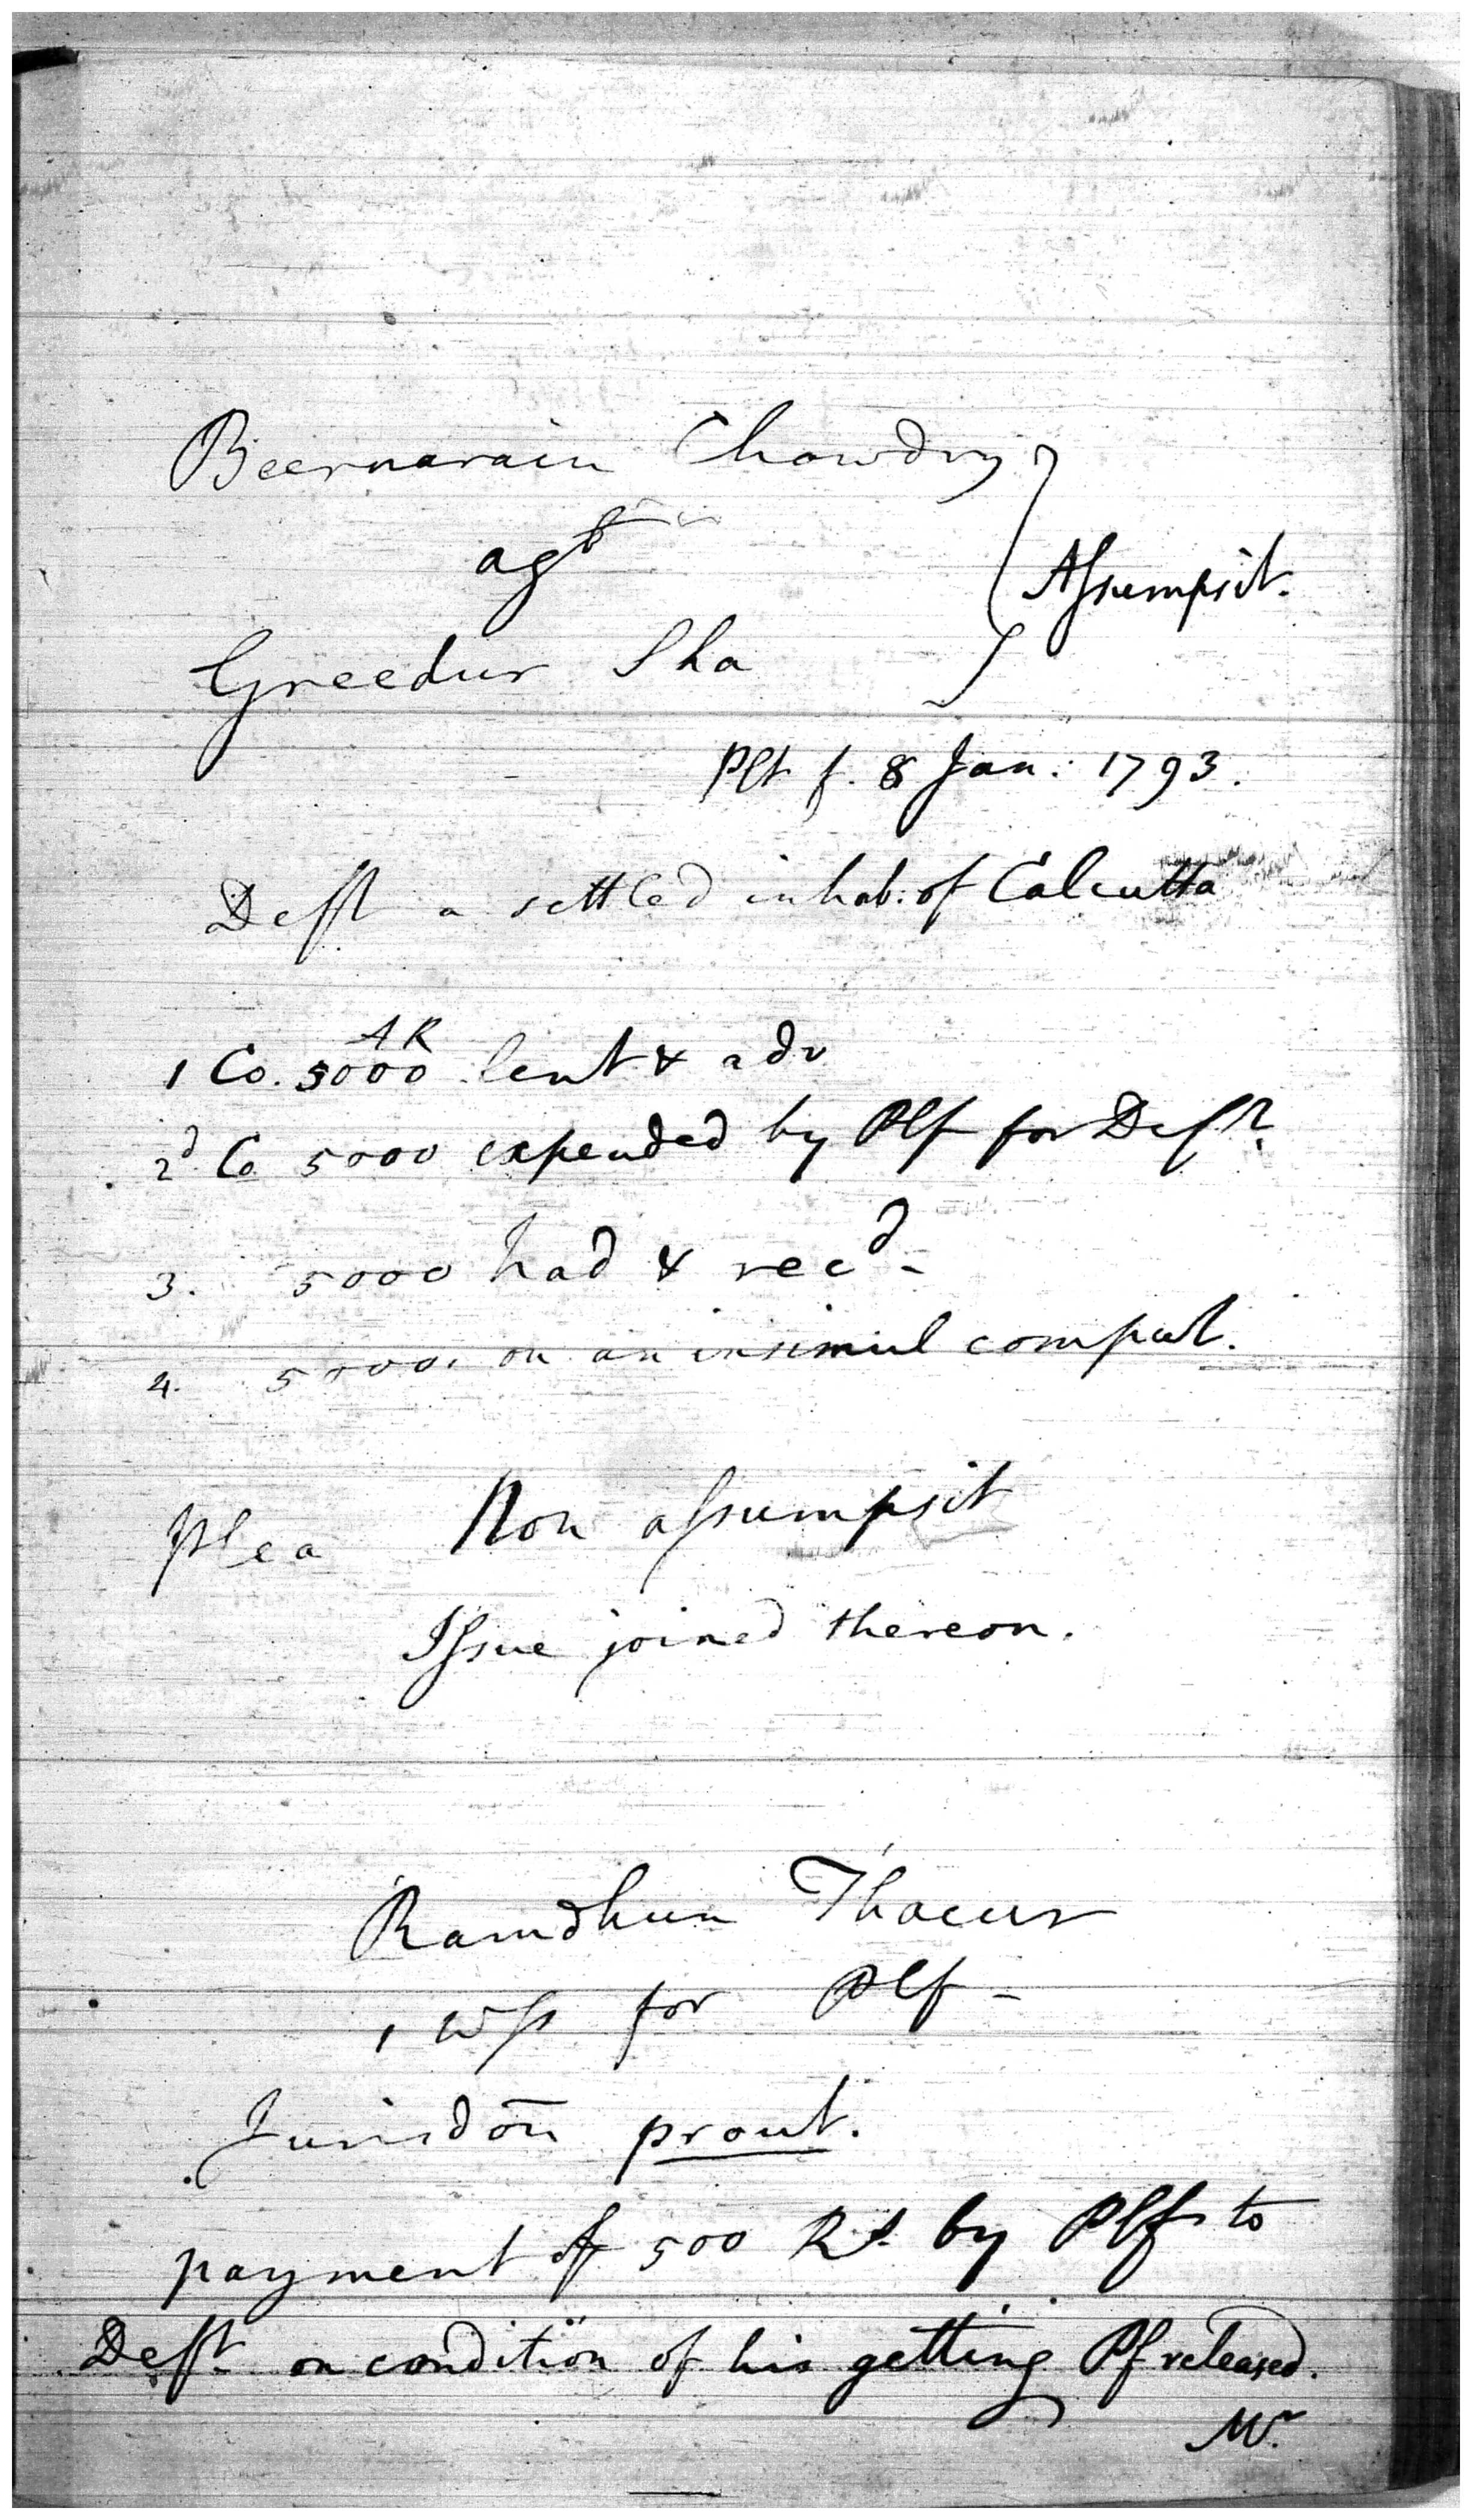 Beernarain Chowdry
agt
Assumpsit.
Greedur Sha
Plt f. 8 Jan: 1793.
Deft a settled inhab: of Calcutta
AR
1 Co. 5000 lent & adv
2d Co 5000 expended by Plf for Deft
3. 5000 had & recd -
4. 5000. on an insimul comput.
Plea Non assumpsit
Issue joined thereon.
Ramdhun Thacur
1 Wss for Plf -
Jurisdon prout.
payment of 500 Rs. by Plf to
Deft on condition of his getting Pf released.
Mr.